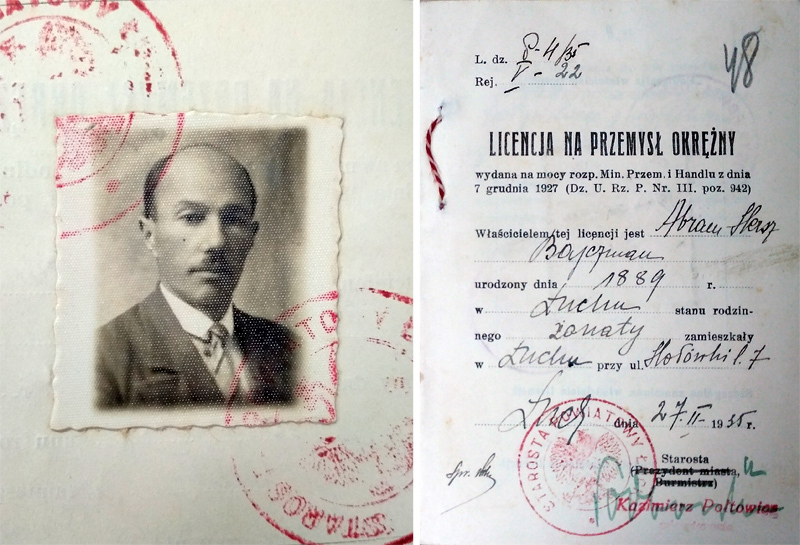 L. dz. 8-4/35
Rej. V-22
48
LICENCJA NA PRZEMYSŁ OKRĘŻNY
wydana na mocy rozp. Min. Przem. i Handlu z dnia
7 grudnia 1927 (Dz. U. Rz. P. Nr. III. poz. 942)
Właścicielem tej licencji jest Abram Hersz
Bojczman
urodzony dnia 1889 r.
w Łucku stanu rodzin-
nego żonaty zamieszkały
w Łucku przy ul. 7
dnia 27-II-1935 r.
Starosta
(Prezydent miasta,
Burmistrz)
Kazimierz
STAROSTA POWIATOWY